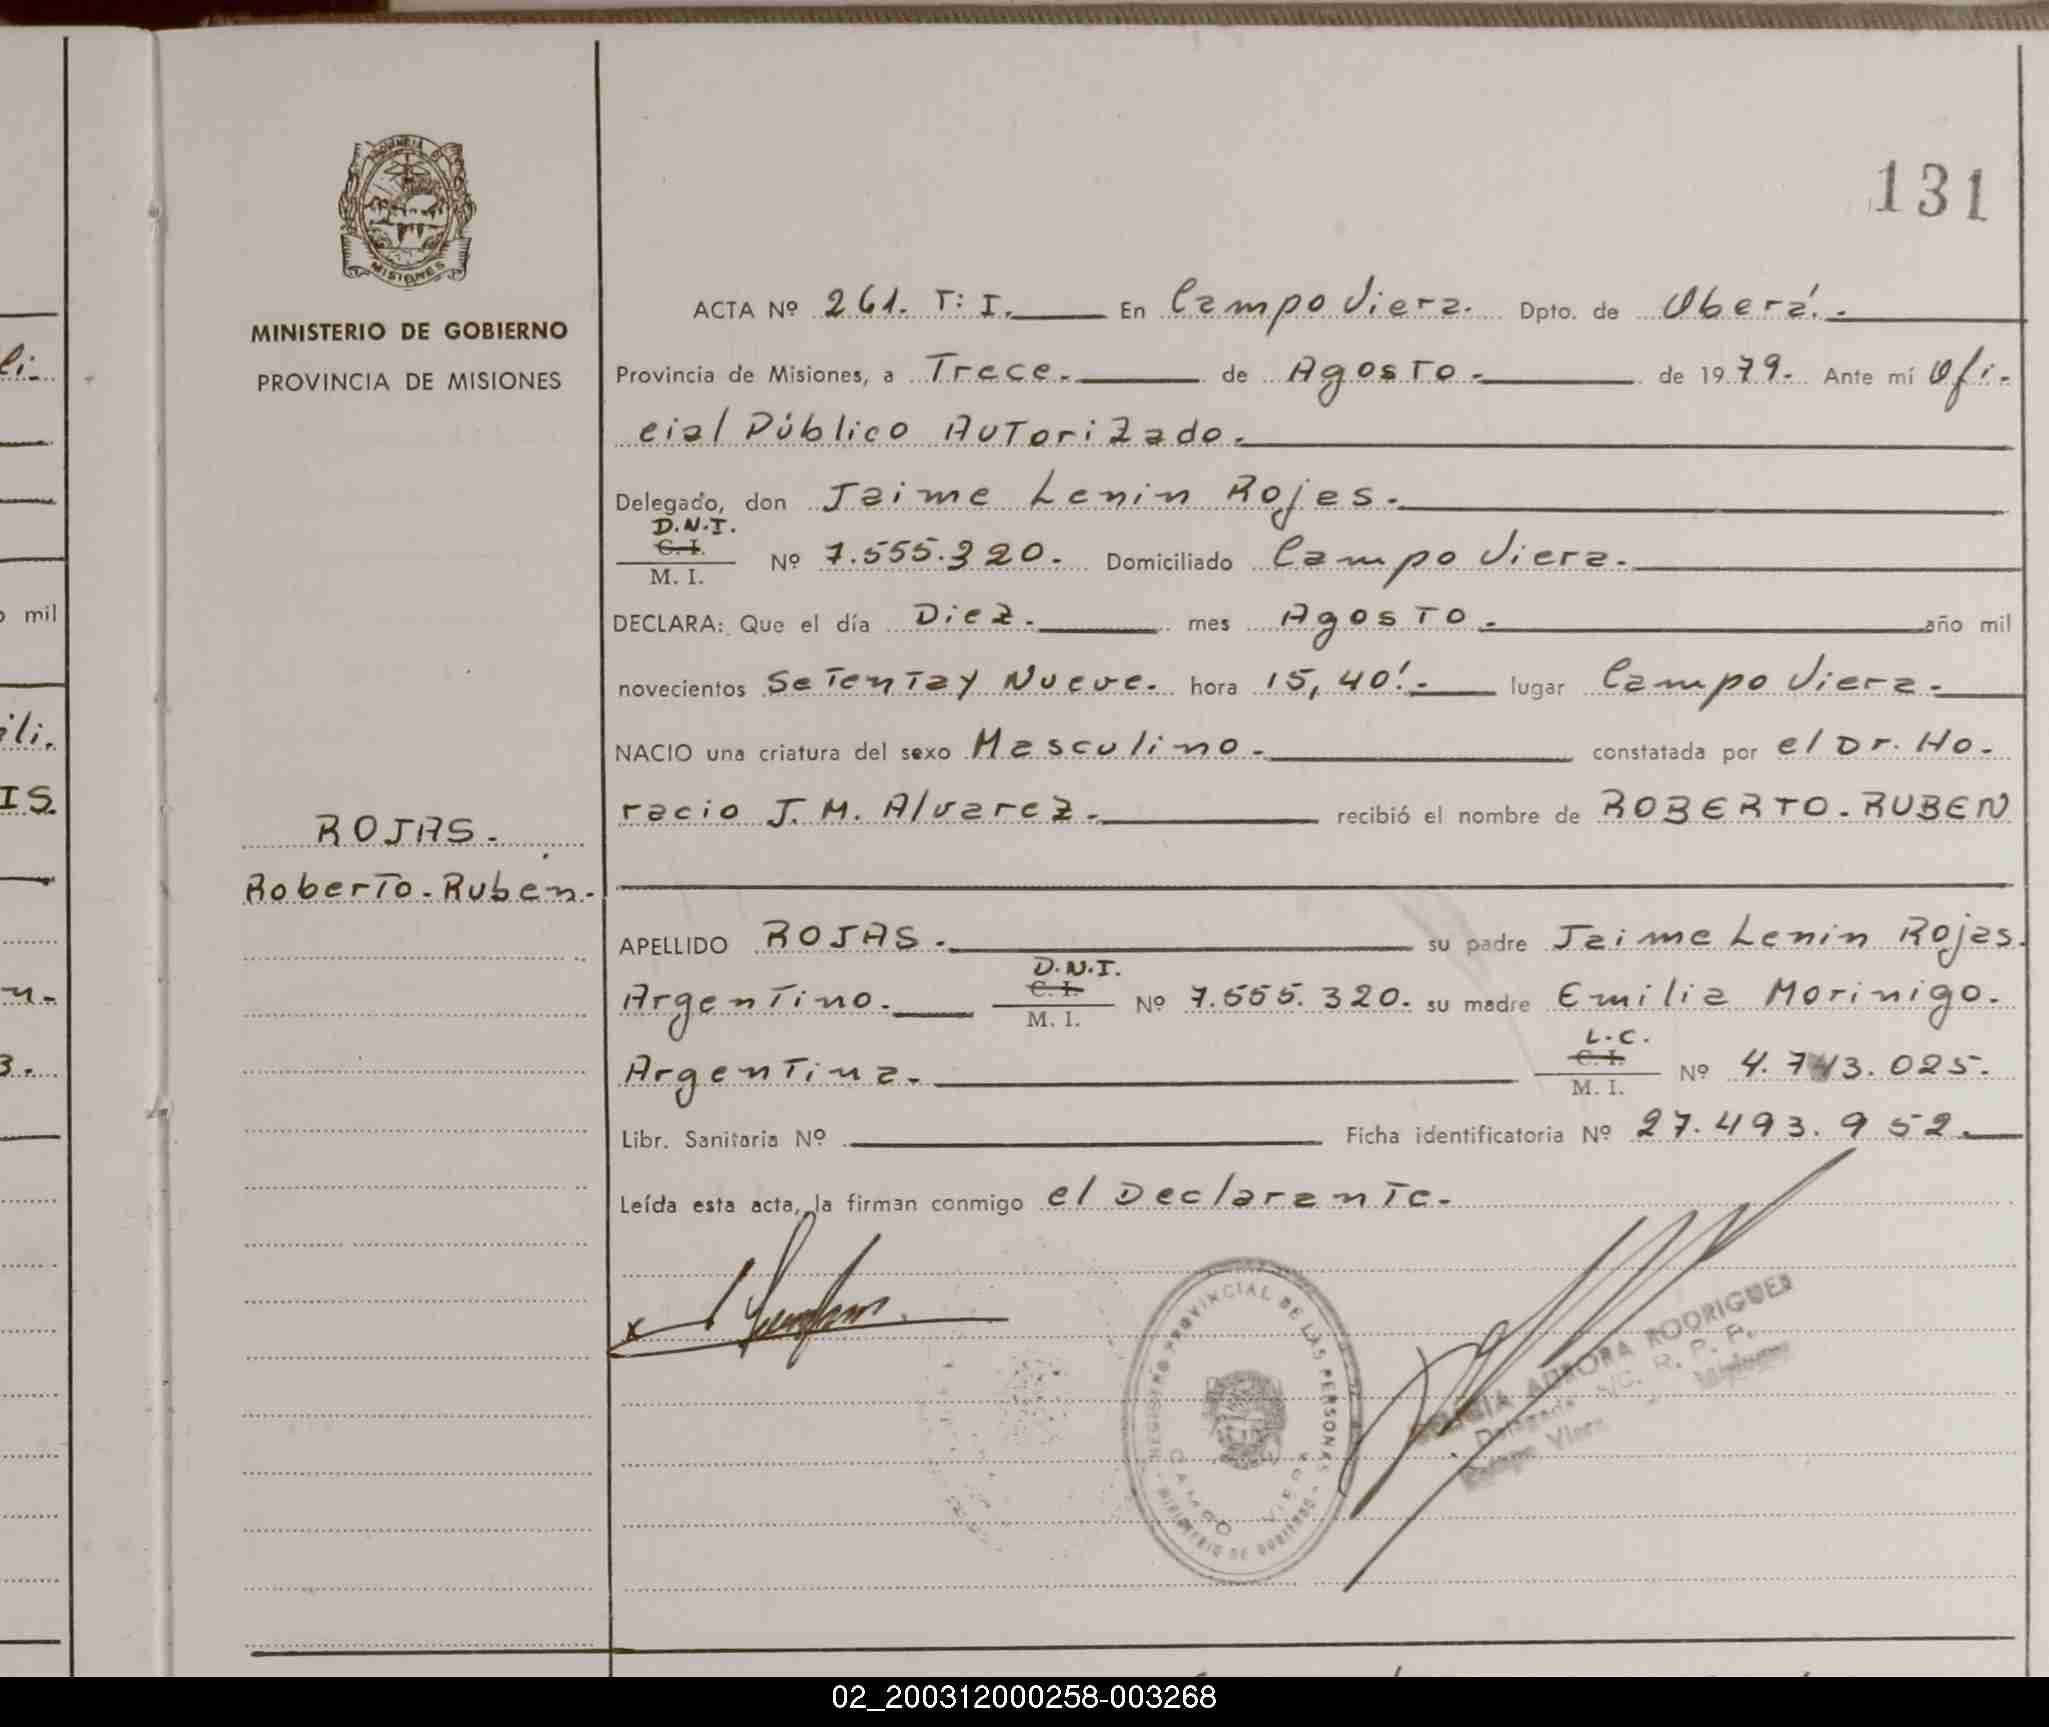 131
MINISTERIO DE GOBIERNO
PROVINCIA DE MISIONES
ROJAS.
Roberto-Ruben.
ACTA Nº 261. T: I. En Campo Viera. Dpto. de Oberá.
Provincia de Misiones, a Trece. de Agosto. de 1979. Ante mí Ofi-
cial Público Autorizado.
Delegado, don Jaime Lenin Rojes.
D.N.I.
C. I. Nº 7.555.320. Domiciliado Campo Viera.
M. I.
DECLARA: Que el día Diez. mes Agosto. año mil
novecientos Setenta y Nueve. hora 15,40'. lugar Campo Viera.
NACIO una criatura del sexo Masculino. constatada por el Dr. Ho-
racio J. M. Alvarez. recibió el nombre de ROBERTO-RUBEN
APELLIDO ROJAS. su padre Jaime Lenin Rojas.
D.N.I.
Argentino. C. I. Nº 7.555.320. su madre Emilia Morinigo.
M. I.
L.C.
Argentina. C. I. Nº 4.743.025.
M. I.
Libr. Sanitaria Nº Ficha identificatoria Nº 27.493.952.
Leída esta acta, la firman conmigo el Declarante.
REGISTRO PROVINCIAL DE LAS PERSONAS
CAMPO VIERA
MINISTERIO DE GOBIERNO
AURORA RODRIGUEZ
Delegada A/C. R. P. P.
Campo Viera - Misiones
li.
o mil
ili.
IS.
n.
3.
PROVINCIA DE
MISIONES
02_200312000258-003268